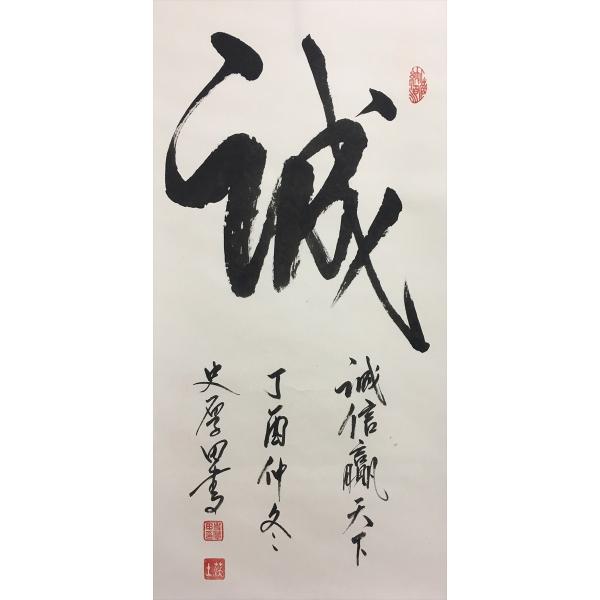 诚
诚信赢天下
丁酉仲冬
史厚田书